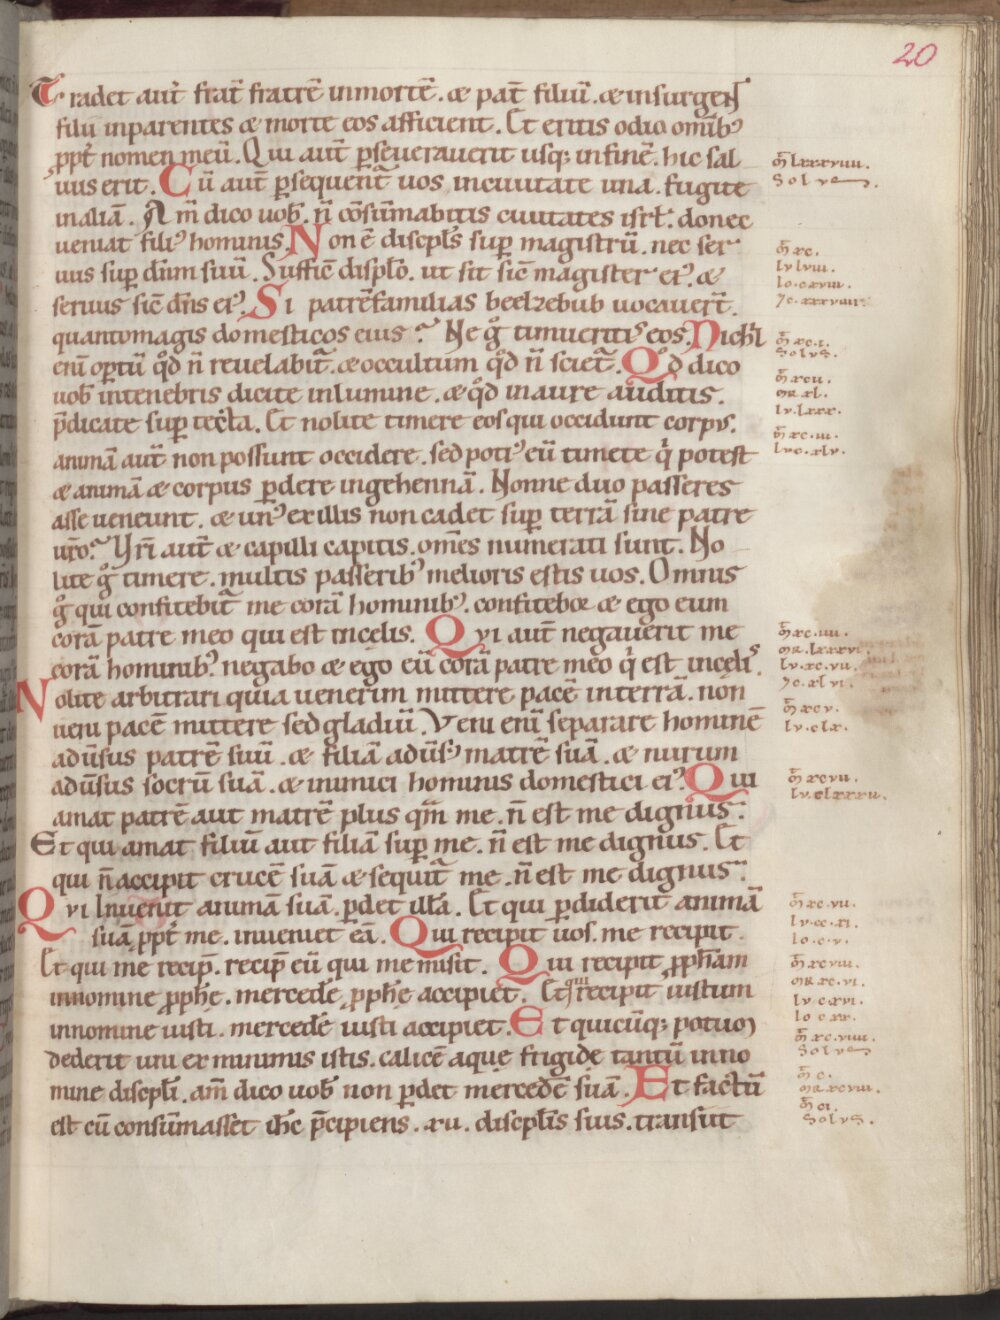 20
Tradet aut̄ frat̄ fratrē inmortē. & pat̄ filiū. & insurgen̄t
filii inparentes & morte eos afficient. Et eritis odio omīb᾽
ꝓpt̄ nomen meū. Qui aut̄ ꝑseuerauerit usq; infinē. hic sal
uus erit. Cū aut̄ ꝑsequent̄ uos inciuitate una. fugite
inaliā. Am̄ dico uob̄. n̄ cōsūmabitis ciuitates isrł. donec
ueniat fili᾽ hominis. Non ē discipl̄s suꝑ magistrū. nec ser
uus suꝑ dn̄m suū. Suffic̄ displ̄o. ut sit sic̄ magister ei᾽. &
seruus sic̄ dn̄s ei᾽. Si patrēfamilias beelzebub uocauer̄t.
quantomagis domesticos eius? Ne g̊ timueritis eos. Nichl̄
eni̅ optū q̊d n̄ reuelabit̄. & occultum q̊d n̄ sciet̄. Q̊d dico
uob̄ intenebris dicite inlumine. & q̊d inaure auditis.
p̄dicate suꝑ tecta. Et nolite timere eos qui occidunt corpus.
animā aut̄ non possunt occidere. sed poti᾽ eū timete q̇ potest
& animā & corpus ꝑdere ingehennā. Nonne duo passeres
asse ueneunt. & un᾽ ex illis non cadet suꝑ terrā sine patre
uro? Vr̄i aut̄ & capilli capitis. om̄es numerati sunt. No
lite g̊ timere. multis passerib᾽ melioris estis uos. Omnis
g̊ qui confitebit̄ me corā hominib᾽. confitebor & ego eum
corā patre meo qui est incelis. Qvi aut̄ negauerit me
corā hominib᾽. negabo & ego eū corā patre meo q̇ est incelis.
Nolite arbitrari quia uenerim mittere pacē interrā. non
ueni pacē mittere sed gladiū. Veni eni̅ separare hominē
adūsus patrē suū. & filiā adūsus matrē suā. & nurum
adūsus socrū suā. & inimici hominis domestici ei᾽. Qui
amat patrē aut matrē plus qm̄ me. n̄ est me dignus.
Et qui amat filiū aut filiā suꝑ me. n̄ est me dignus. Et
qui n̄ accipit crucē suā & sequit̄ me. n̄ est me dignus.
Qvi Inuenit animā suā. ꝑdet illā. Et qui ꝑdiderit animā
suā ꝓpt̄ me. inueniet eā. Qui recipit uos. me recipit.
Et qui me recip̄. recip̄ eū qui me misit. Qui recipit ꝓpham̄
innomine ꝓphe̅. mercedē ꝓphe̅ accipiet. Et qui recipit iustum
innomine iusti. mercedē iusti accipiet. Et quicūq; potum
dederit uni ex minimis istis. calicē aque frigide tantū inno
mine discipl̄i. am̄ dico uob̄ non ꝑdet mercedē suā. Et factū
est cū consūmasset ihc̄ p̄cipiens. xii. discipl̄is suis. transiit
m̄ lxxxviiii.
Solus.
m̄ xc.
lv lviii.
Io. cxviiii.
m̄ xc.i.
Solus.
m̄ xcii.
mr. xl.
lv. lxxx.
m̄ xc.iii.
m̄ xc.iiii.
lv. xc.vii.
m̄ xcv.
lv. clx.
m̄ xc.vii.
lv. cc.xi.
Io. c.v.
m̄ xcviii.
mr. xc.vi.
lv cxvi.
Io cxx.
m̄ xc.viiii.
Solus
m̄ c.
mr. xcviii.
m̄ ci.
Solus.